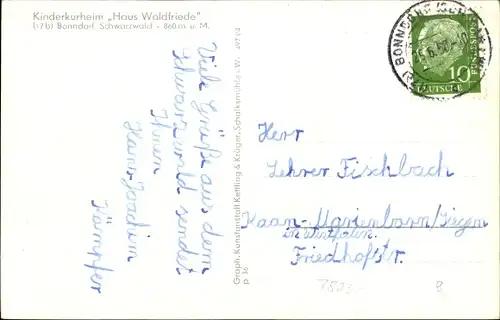 Kinderkurheim „Haus Waldfriede"
(17b) Bonndorf, Schwarzwald - 860 m ü. M.
Viele Grüße aus dem
Schwarzwald sendet
Ihnen
Hans-Joachim
Kämpfer
Graph. Kunstanstalt Kettling & Krüger, Schalksmühle - W.
P 36
BONNDORF
10
DEUTSCHE
BUNDESPOST
Herr
Lehrer Fischbach
Kaan-Marienborn/Siegen
in Westfalen.
Friedhofstr.